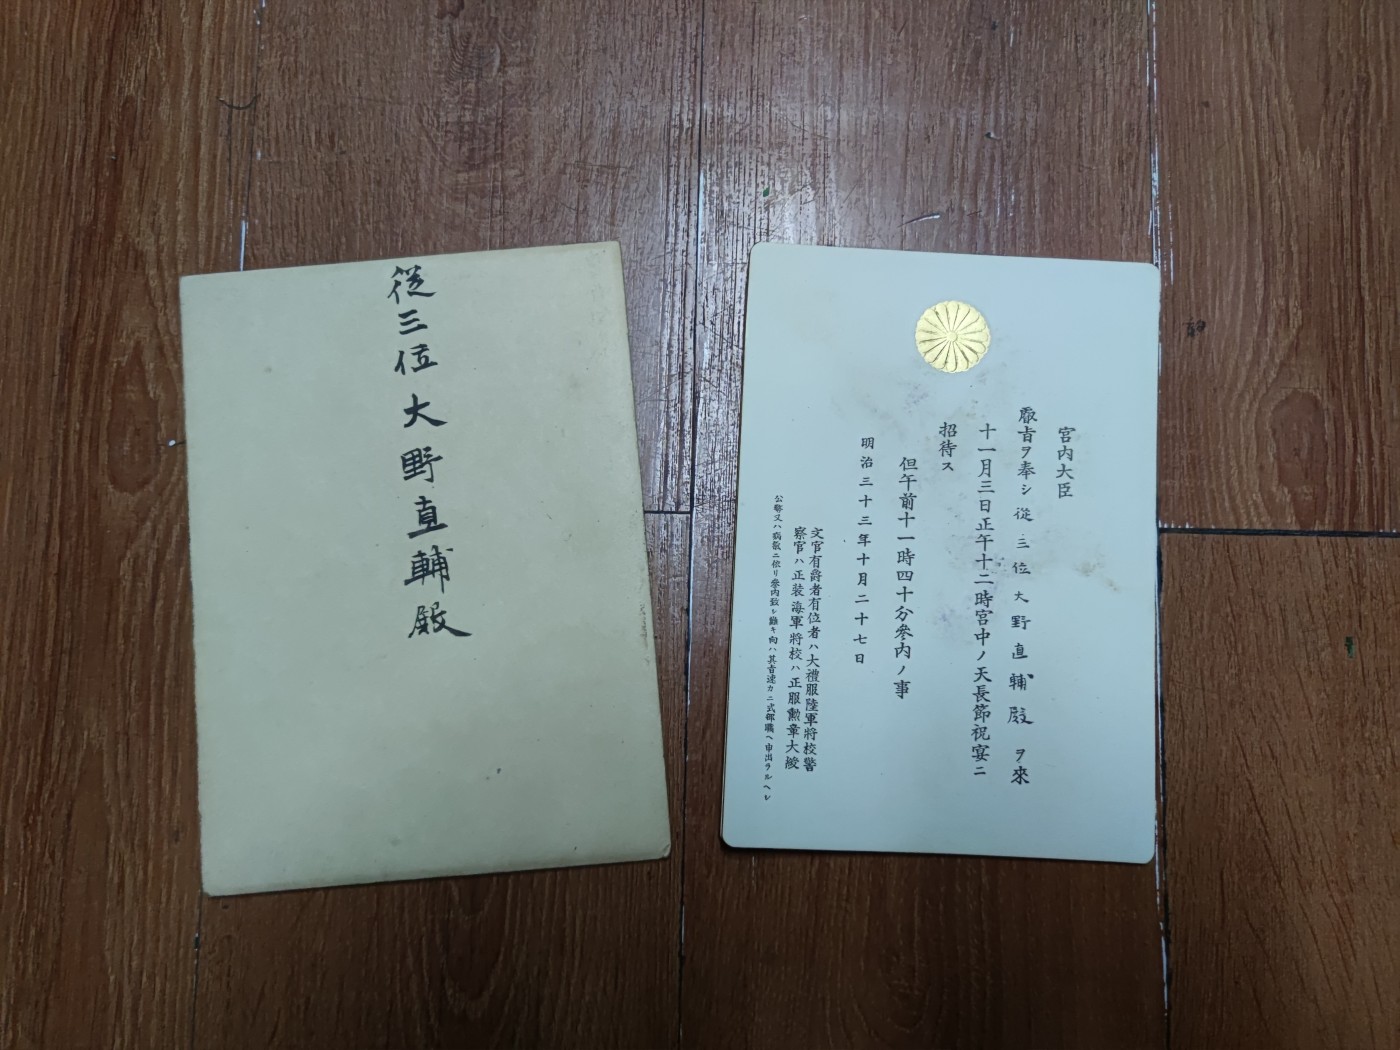 從三位大野直輔殿
宮内大臣
叡旨ヲ奉シ從三位大野直輔殿ヲ來
十一月三日正午十二時宮中ノ天長節祝宴ニ
招待ス
但午前十一時四十分參内ノ事
明治三十三年十月二十七日
文官有爵者有位者ハ大禮服陸軍將校警
察官ハ正装海軍將校ハ正服勲章大綬
公務又ハ病氣ニ依リ參内致シ難キ向ハ其旨速カニ式部職ヘ申出ラルヘシ